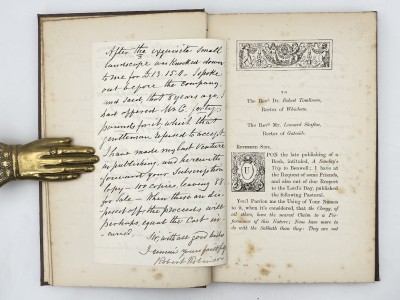 After the exquisite small
landscape was knocked down
to me for £13.15.0 - I spoke
out before the Company,
and said, that 8 years ago, I
had offered Mr C. forty
pounds for it which that
gentleman refused to accept.
I have made my last venture
in publishing, and herewith
forward your Subscription
Copy - 100 copies, leaving 88
for Sale - When these are dis-
posed off the proceeds will
perhaps equal the Cost in-
curred.
Sir, with all good wishes
I remain yours faithfully
Robert Robinson
TO
The Revd Dr. Robert Tomlinson,
Rector of Whickham.
The Revd Mr. Leonard Shafto,
Rector of Gateside.
REVEREND SIRS,
UPON the late publishing of a
Book, intituled, A Sunday's
Trip to Benwell; I have at
the Request of some Friends,
and also out of due Respect
to the Lord's Day, published
the following Pastoral.
You'll Pardon me the Using of Your Names
to it, when it's considered, that the Clergy, of
all others, have the nearest Claim to a Per-
formance of this Nature; None have more
to do with the Sabbath than They: They are not